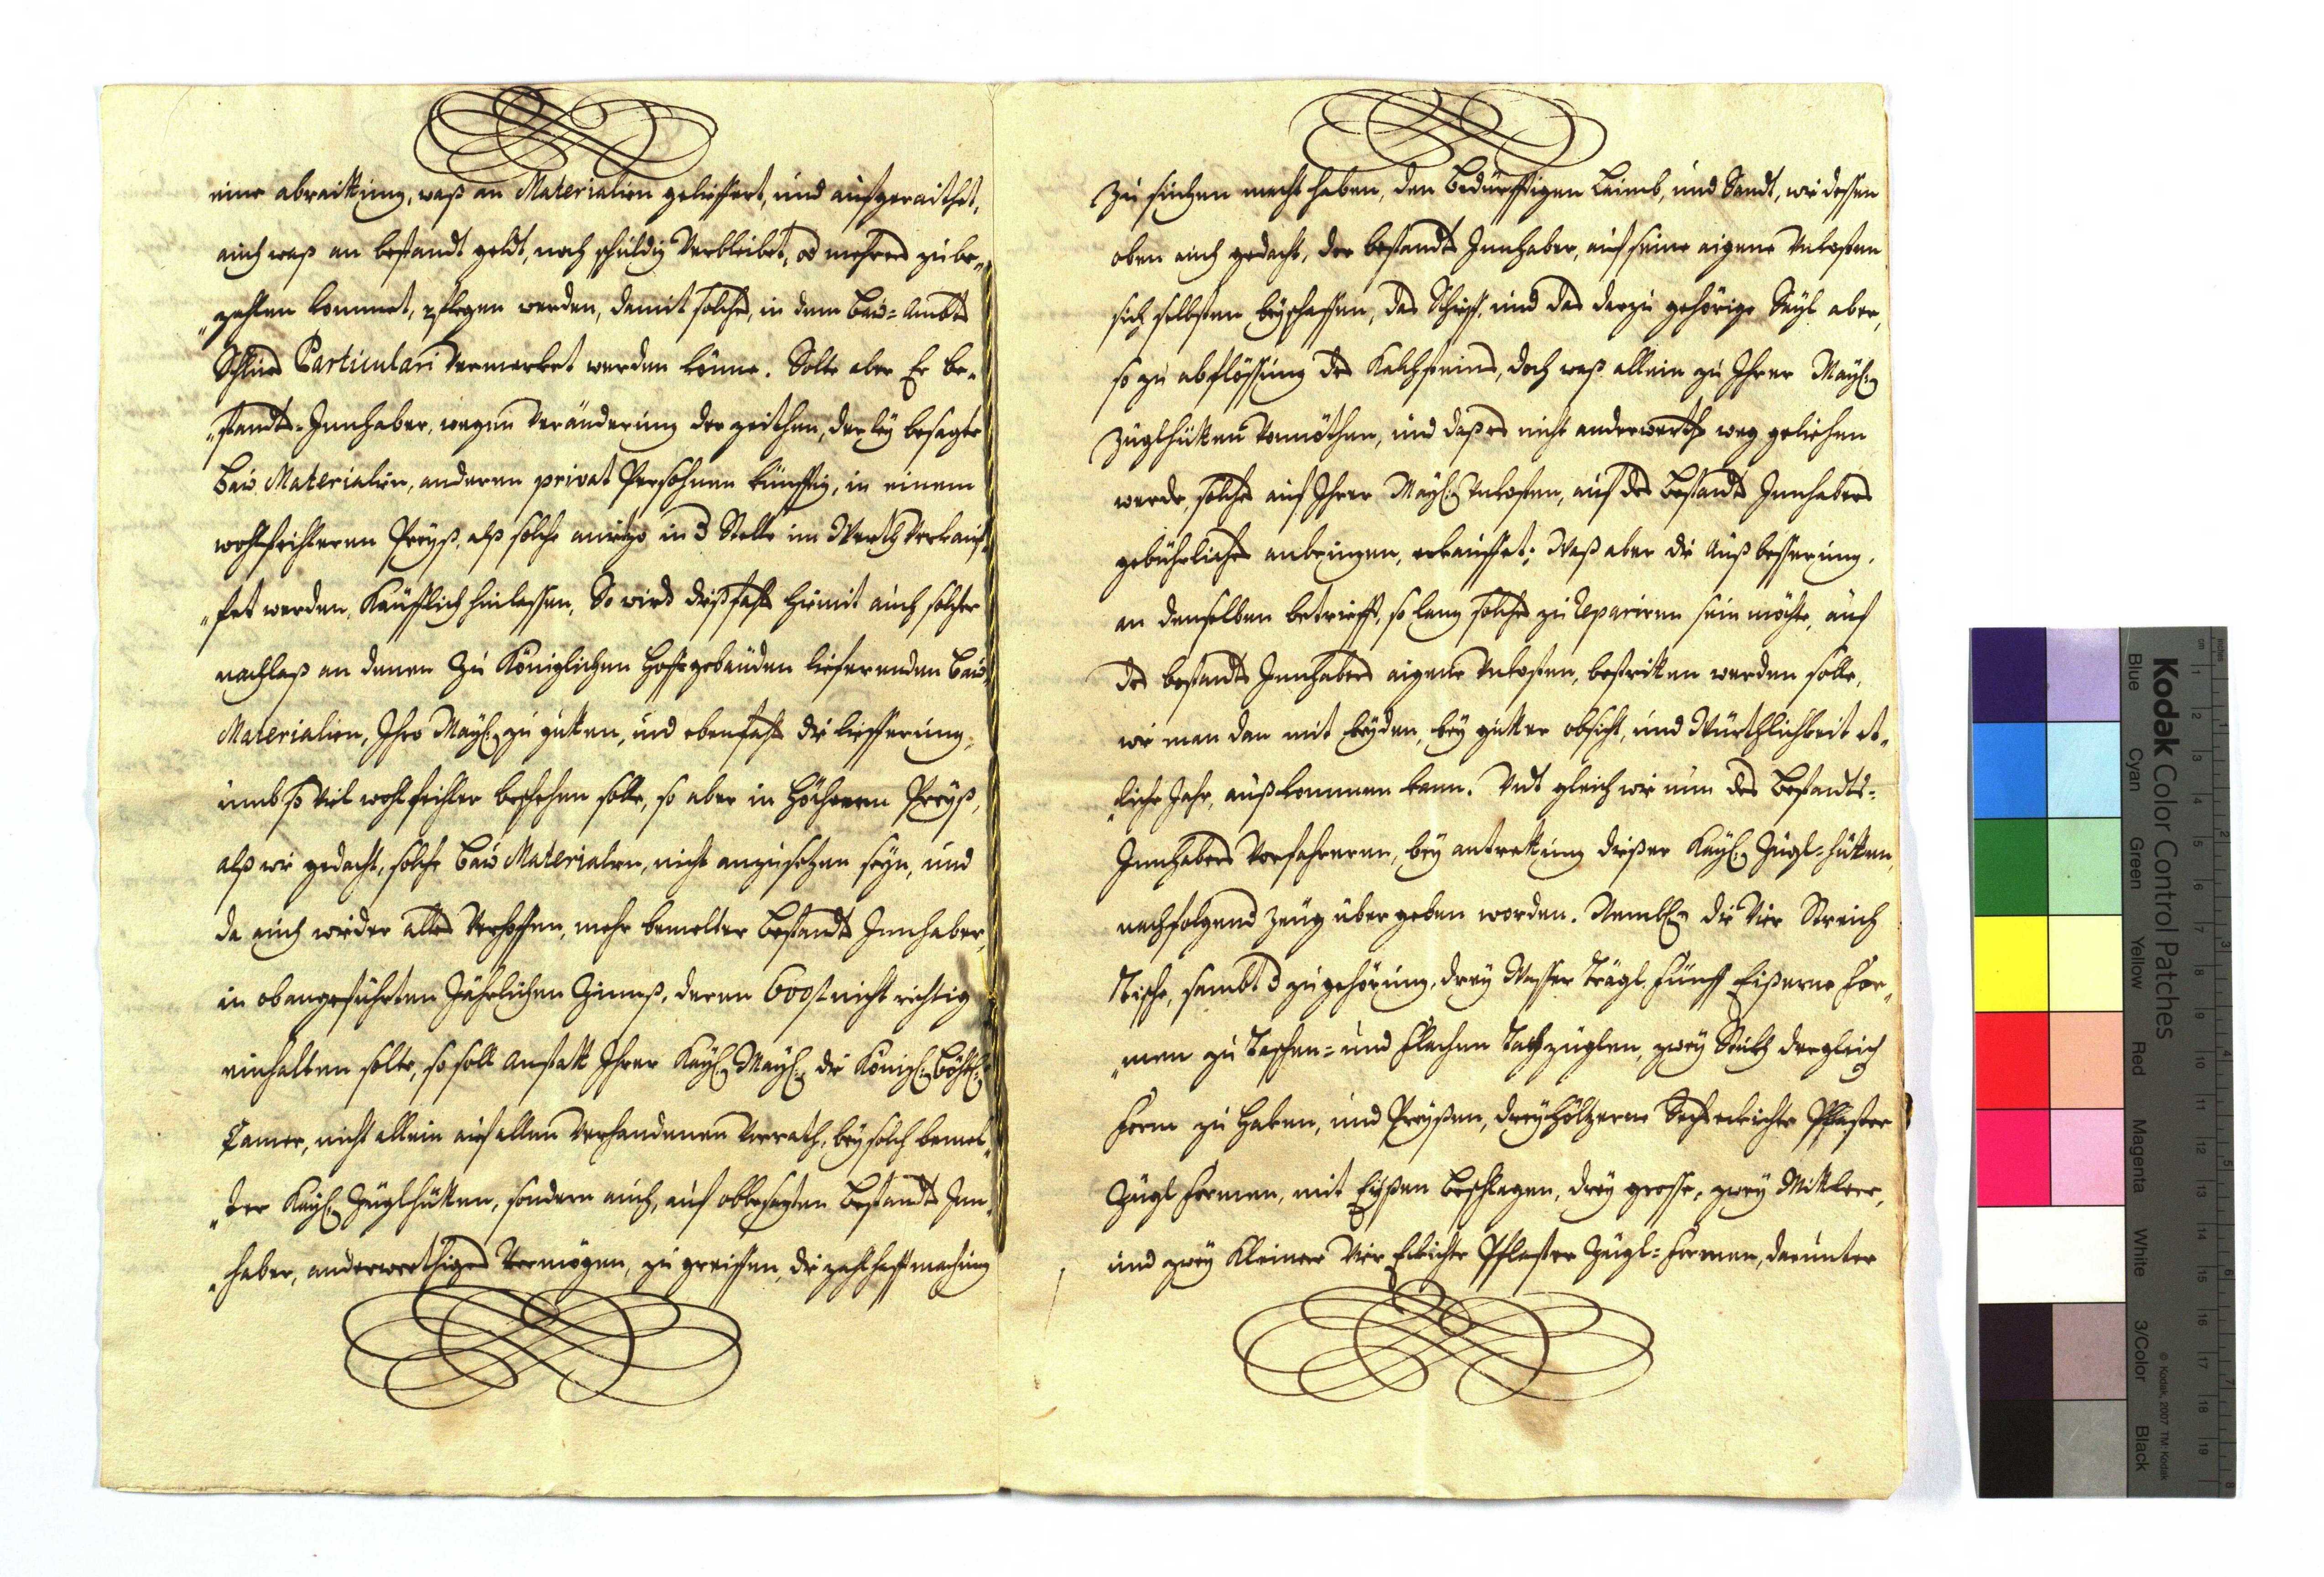 eine abraittung, waß an Materialien gelieffert, und aufgeraithet,
auch waß an bestandt geldt, noch schuldig Verbleibet, od mehrers zu be„
„zahlen kommet, pflegen werden, damit solches, in dem Bau=Ambts
Schluß Particulari vermerket werden könne. Solte aber Er be„
„standt=Innhaber, wegen Veränderung der zeithen, derley besagte
Bau Materialien, anderen privat Persohnen künfftig, in einem
wohlfeihleren Preyß, alß solche anietzo in 3 Stette im Werth Verkauf„
„fet werden, Kaüfflich hinlassen, So wird dißfahls hiemit auch solcher
nachlaß an denen Zu Königlichen Hoffgebäuden lieferenden Bau
Materialien, Ihro Mayl: zu gutten, und ebenfahls die liefferung,
umb so viel wohlfeihler beschehen solle, so aber in höcheren Preyß,
alß wie gedacht, solche Bau Materialien, nicht anzusetzen seyn, und
da auch wieder alles Verhoffen, mehr bemelter Bestandt Innhaber,
in obangeführten Jährlichen Zinnß, deren 600 f nicht richtig
einhalten solte, so soll anstatt Ihrer Kayl: Mayl: die Königl: Böhl:
Camer, nicht allein auf allen Verhandenen Vorrath, bey solch bemel„
„ter Kayl: Züglhütten, sondern auch, auf obbesagten Bestandt Inn„
„haber, anderwerthiges Vermögen, zu greiffen, die zahlhafftmachung
Zu suchen macht haben, den Bedürfftigen Laimb, und Sandt, wie dessen
oben auch gedacht, der bestandts Innhaber, auf seine aigene Unkosten
sich selbsten beyschaffen, das Schieff und das darzu gehörige Sayl aber,
so zu abflössung des Kalchsteins, doch waß allein zu Ihrer Mayl:
Züglhütten Vonnöthen, und daß es nicht anderwerths weg geliehen
werde, solches auf Ihrer Mayl: Unkosten, auf des Bestandts Innhabers
gebührliches anbringen, erkauffet; Waß aber die Außbesserung,
an denselben betriefft, so lang solches zu Repariren sein möchte, auf
des bestandts Innhabers aigene Unkosten, bestritten werden solle,
wie man dan mit beyden, bey gutter obsicht, und Würthlichkeit et„
„liche Jahr, außkommen kann. Undt gleich wie nun des Bestandts=
Innhabers Vorfahreren, bey antrettung dießer Kayl: Zügl=hütten,
nachfolgend Zeüg übergeben worden. Nembl: die Vier Streich
Tische, sambt d zugehörung, drey Wasser Trägl, Fünff Eißerne For„
„men zu Taschen= und Flachen Tachzüglen, zwey Stükh dergleich
Form zu Haken, und Preyßen, drey höltzerne Sechseckichte Pflaster
Zügl Formen, mit Eyßen Beschlagen, drey grosse, zwey Mittlere,
und zwey Kleinere Vier Eckichte Pflaster Zügl=Formen, darunter